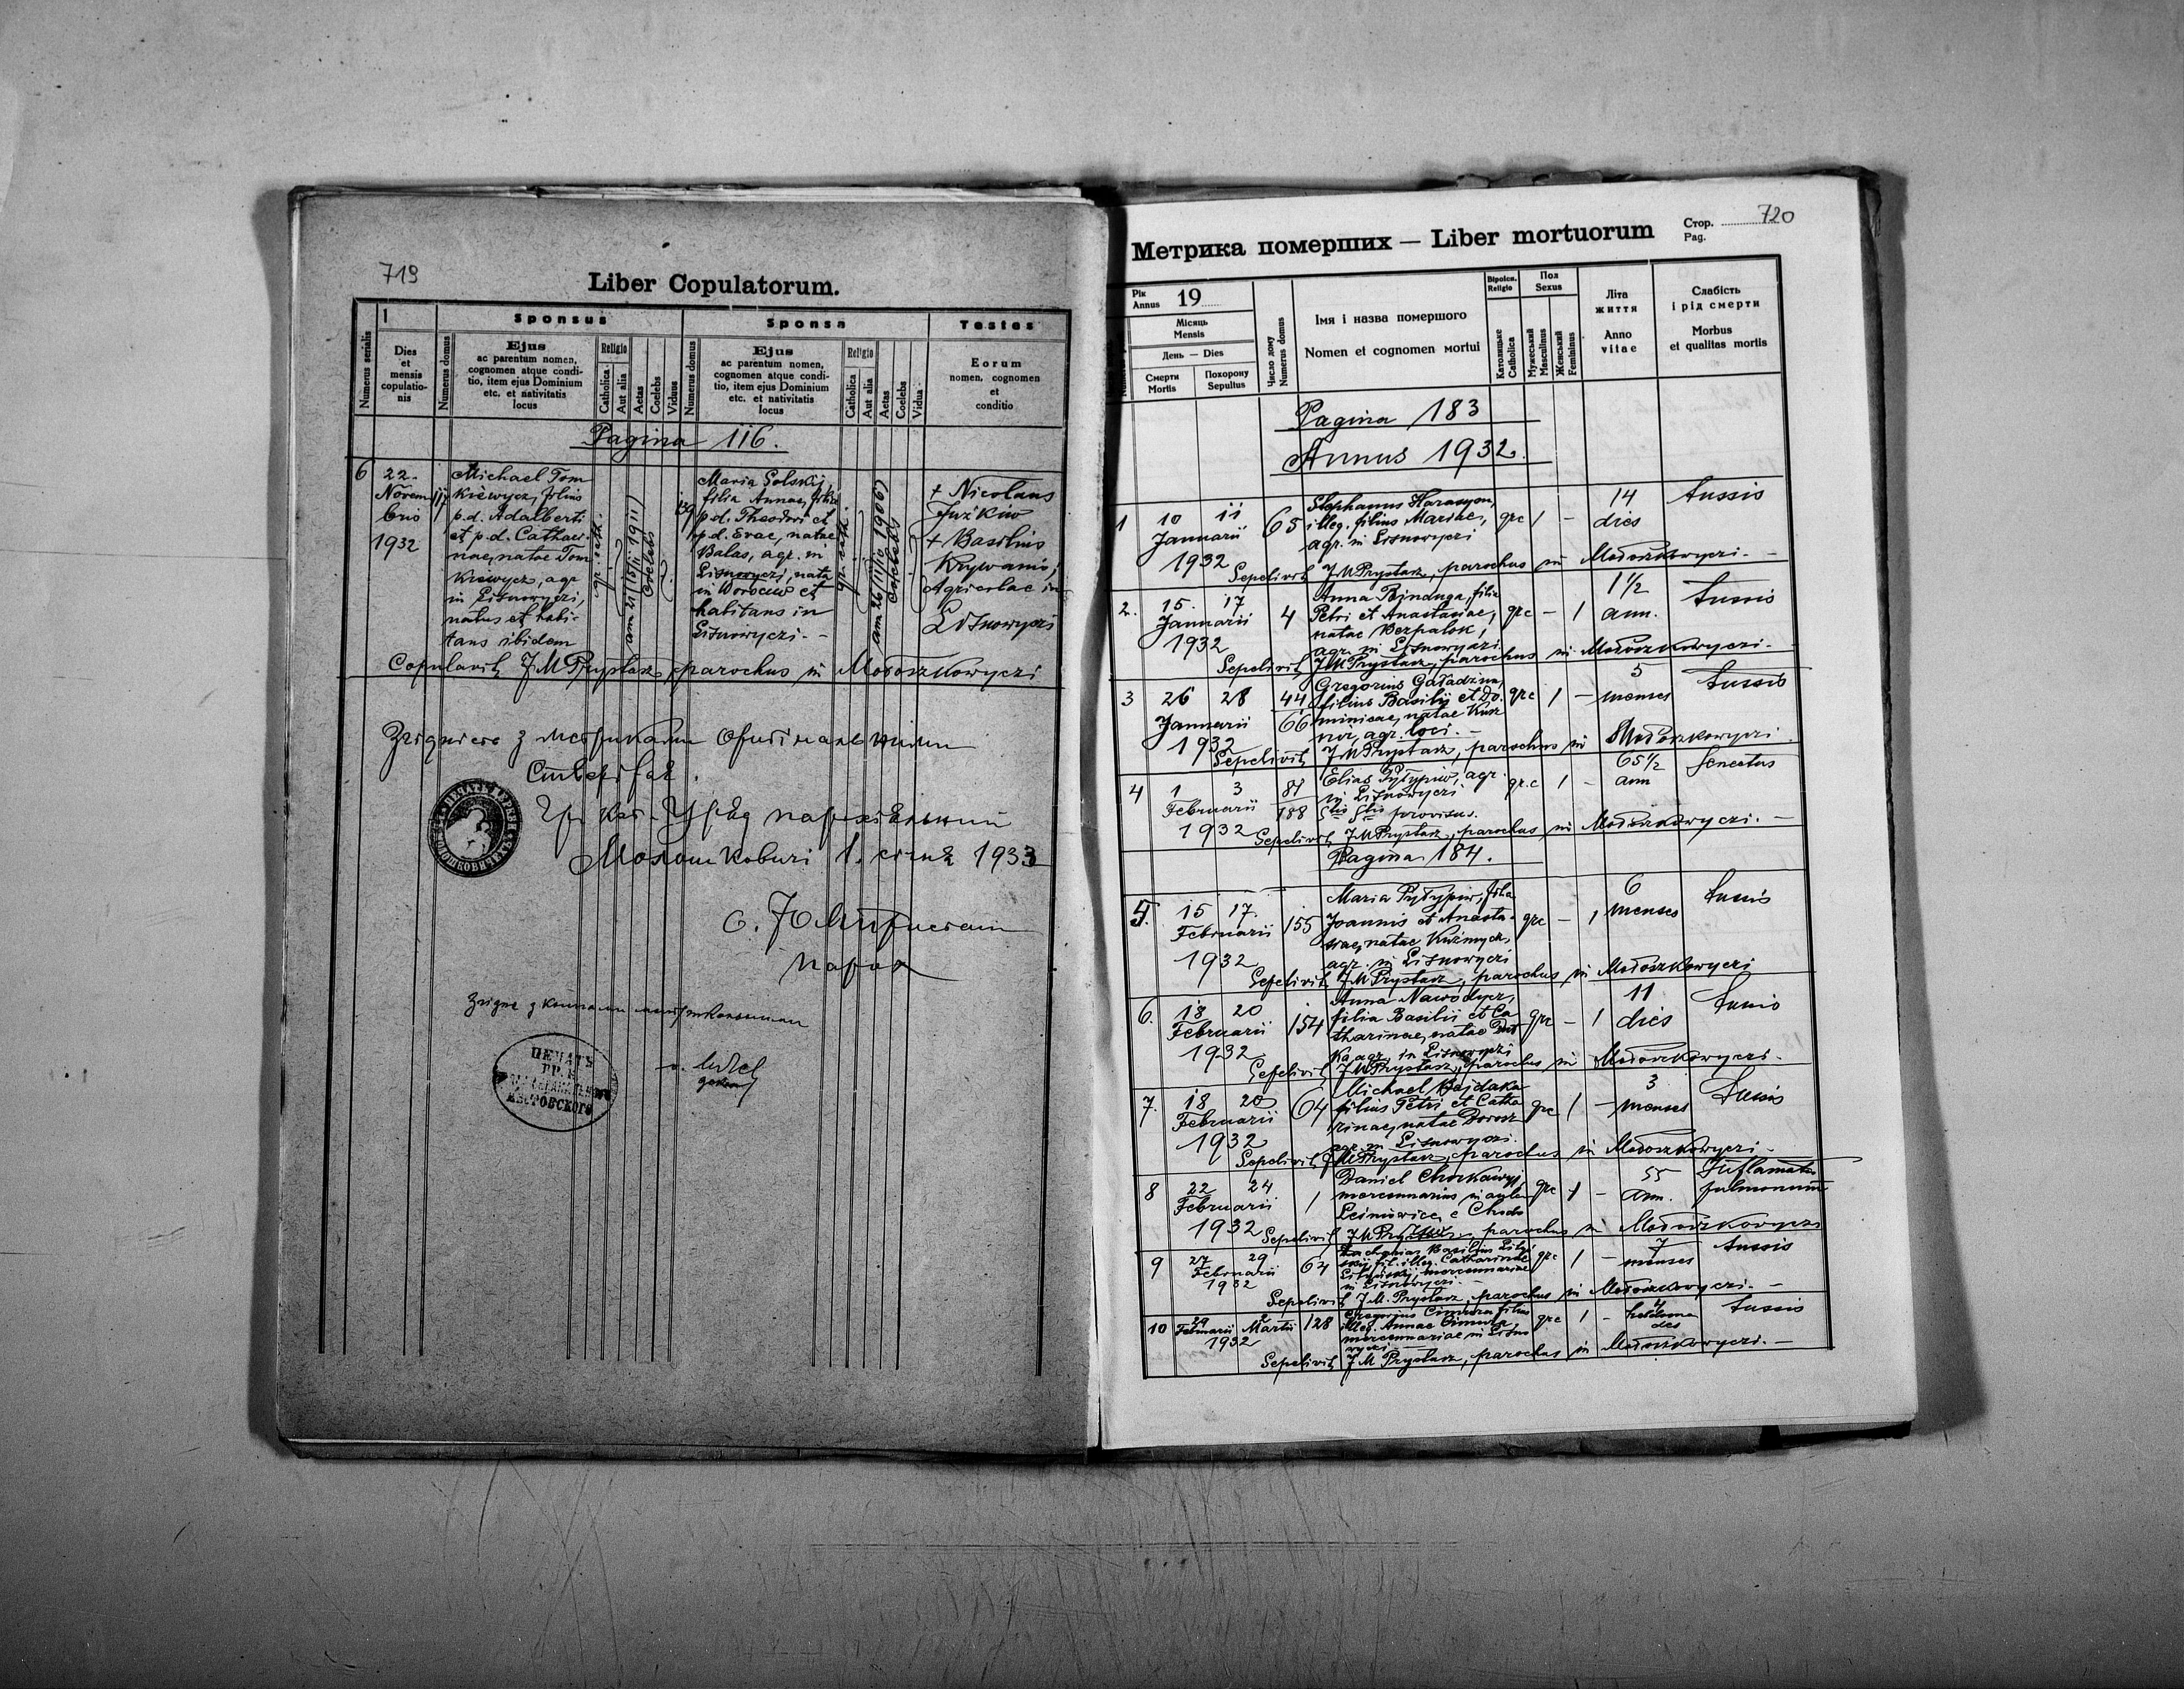 719
Liber Copulatorum.
Numerus serialis
1
Dies
et
mensis
copulatio-
nis
Numerus domus
Sponsus
Ejus
ac parentum nomen,
cognomen atque condi-
tio, item ejus Dominium
etc. et nativitatis
locus
Religio
Catholica
Aut alia
Aetas
Coelebs
Viduus
Numerus domus
Sponsa
Ejus
ac parentum nomen,
cognomen atque condi-
tio, item ejus Dominium
etc. et nativitatis
locus
Religio
Catholica
Aut alia
Aetas
Coelebs
Vidua
Testes
Eorum
nomen, cognomen
et
conditio
Pagina 116.
6
22.
Novem
bris
1932
117
Michael Tom
kiewycz, filius
p.d. Adalberti
et p.d. Cathari
nae, natae Tom
kiewycz, agr.
in Lisnowyczi,
natus et habi-
tans ibidem
gr. cath.
ann 21 (15/11 1911)
Coelebs
139
Maria Solskij
filia Annae, filia
p.d. Theodori et
p.d. Evae, natae
Balas, agr. in
Lisnowyczi, nata
in Worociw et
habitans in
Lisnowyczi. -
gr. cath.
ann 26 (11/10 1906)
Coelebs
+ Nicolaus
Juźkiw
+ Basilius
Krywanis,
Agricolae in
Lisnowyczi
Copulavit J M Prystasz, parochus in Mołoszkowyczi
Згідність з метриками оригінальними
Стверджає.
Гр. кат. Уряд парохіяльний
Молошковичі 1. січня 1933
о. Ю М Присташ
парох
ПЕЧАТЬ
ГР. К.
ЯВОРОВСКОГО
Стор.
Pag.
720
Метрика померших — Liber mortuorum
Рік
Annus 19
Місяць
Mensis
День — Dies
Смерти
Mortis
Похорону
Sepultus
Число дому
Numerus domus
Імя і назва помершого
Nomen et cognomen mortui
Віроісп.
Religio
Католицьке
Catholica
Пол
Sexus
Мужеський
Masculinus
Женський
Femininus
Літа
життя
Anno
vitae
Слабість
і рід смерти
Morbus
et qualitas mortis
Pagina 183
Annus 1932.
1 10 11 Januarii 1932 65
Stephanus Harasym,
illeg. filius Mariae,
agr. in Lisnowyczi
grc 1 - 14 dies tussis
Sepelivit J M Prystasz, parochus in Mołoszkowyczi. -
2. 15. 17 Januarii 1932 4
Anna Bjnduga, filia
Petri et Anastasiae,
natae Bezpalok,
agr. in Lisnowyczi
grc - 1 1½ ann. tussis
Sepelivit J M Prystasz, parochus in Mołoszkowyczi. -
3 26 28 Januarii 1932 44 66
Gregorius Gaładzun,
filius Basilii et Do
minicae, natae Kusz
nir, agr. loci. -
grc 1 - 5 menses tussis
Sepelivit J M Prystasz, parochus in Mołoszkowyczi.
4 1 3 Februarii 1932 87 188
Elias Pyłypiw, agr.
in Lisnowyczi
Stis Stis provisus.
gr.c 1 - 65½ ann senectus
Sepelivit J M Prystasz, parochus in Mołoszkowyczi. -
Pagina 184.
5. 15 17. Februarii 1932 155
Maria Pyłypiw, filia
Joannis et Anasta-
siae, natae Kuźmycz,
agr. in Lisnowyczi
grc - 1 6 menses tussis
Sepelivit J M Prystasz, parochus in Mołoszkowyczi
6. 18 20 Februarii 1932 154
Anna Nawodycz,
filia Basilii et Ca
tharinae, natae
ka, agr. in Lisnowyczi
grc - 1 11 dies tussis
Sepelivit J M Prystasz, parochus in Mołoszkowyczi.
7. 18 20 Februarii 1932 64
Michael Bajdaka
filius Petri et Catha
rinae, natae Dorosz
agr. in Lisnowyczi.
grc 1 - 3 menses tussis
Sepelivit J M Prystasz, parochus in Mołoszkowyczi -
8 22 24 Februarii 1932 1
Daniel Chorkawyj
mercennarius in
Leśniowice, e
grc 1 - 55 ann. Inflamatio pulmonum
Sepelivit J M Prystasz, parochus in Mołoszkowyczi
9 27 29 Februarii 1932 64
Zacharias Basilius
fil. illeg. Catharinae
mercennariae
in Lisnowyczi. -
grc 1 - 7 menses tussis
Sepelivit J. M. Prystasz, parochus in Mołoszkowyczi. -
10 29 Februarii 2 Martii 1932 128
Gregorius Cimura filius
illeg. Annae Cimura,
mercennariae in Lisno
wyczi
grc 1 - 4 hebdoma des tussis
Sepelivit J M Prystasz, parochus in Mołoszkowyczi. -